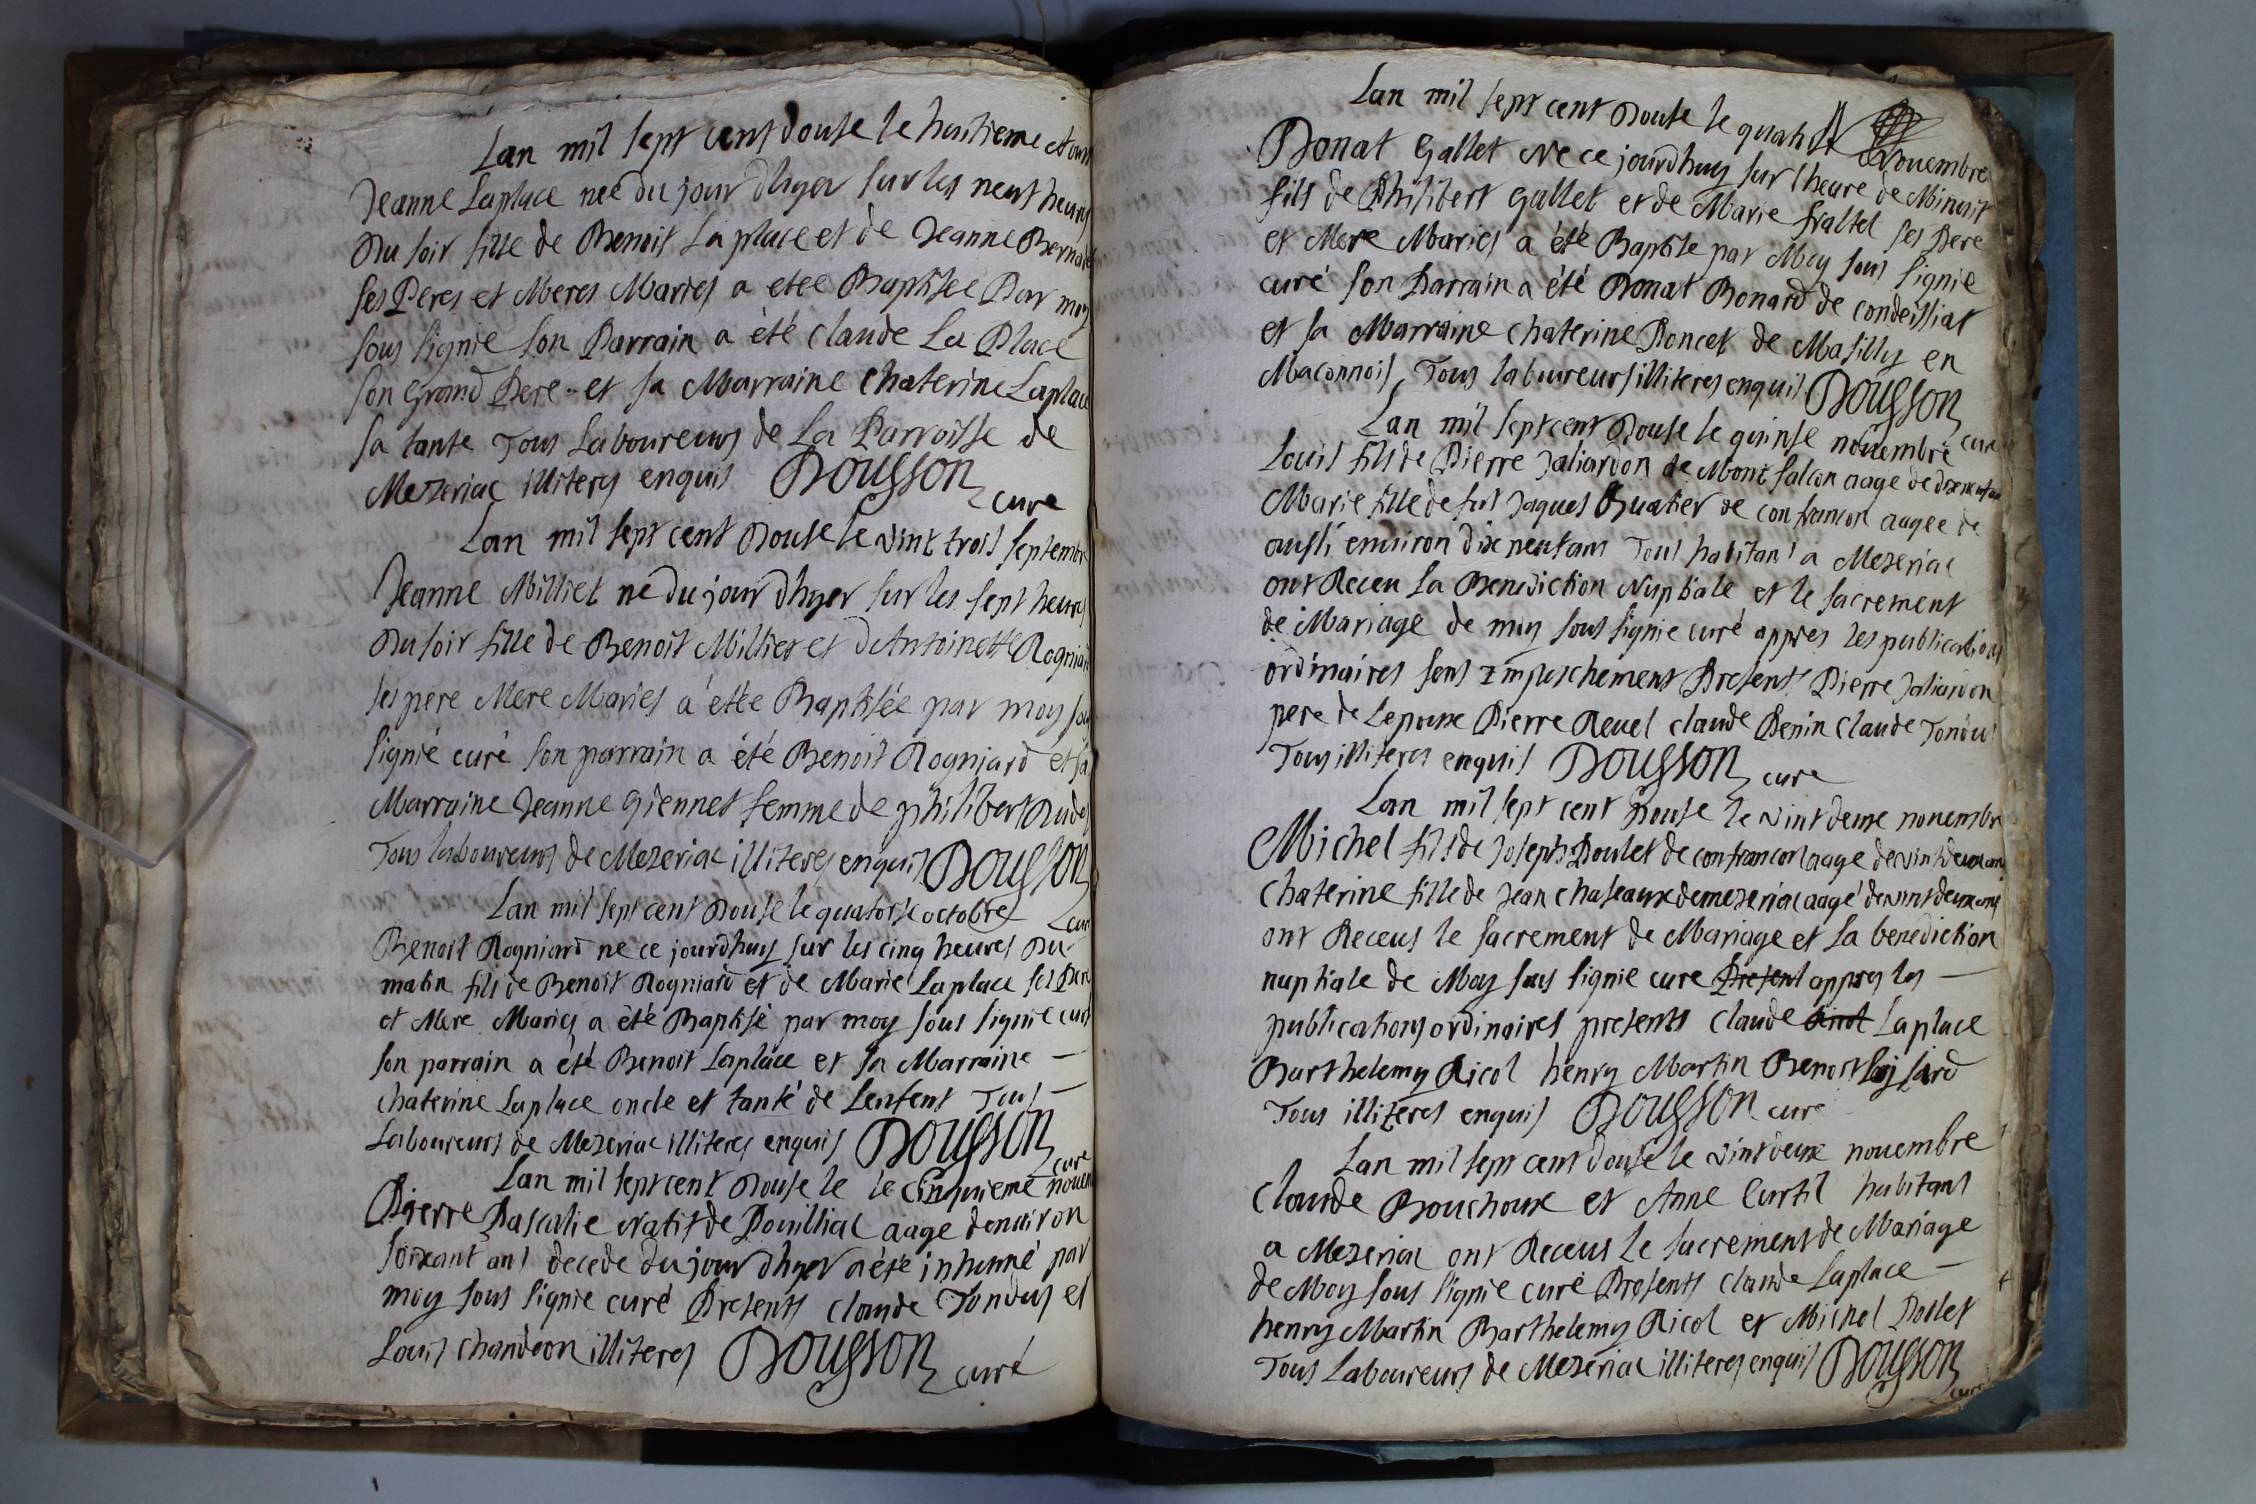 Lan mil sept cent douse le huitieme Aoust
Jeanne Laplace neé du jour dhyer sur les neuf heures
du soir fille de Benoit La place et de Jeanne
ses Peres et Meres Mariés a eteé Baptiseé Par moy
sous signie son Parrain a été claude La Place
son Grand Pere et sa Marraine chaterine Laplace
sa tante Tous Laboureurs de La Parroisse de
Mezeriac illiteres enquis DOUSSON
cure
Lan mil sept cent Douse le vint trois septembre
Jeanne Milliet né du jour dhyer sur les sept heures
du soir fille de Benoit Milliet et dAntoinette Rogniard
ses pere Mere Mariés a étée Baptisée par moy sous
signié curé son parrain a été Benoit Rogniard et sa
Marraine Jeanne Giennet femme de philibert
Tous laboureurs de Mezeriac illiteres enquis DOUSSON
Lan mil sept cent Douse le quatorse octobre cure
Benoit Rogniard ne ce jourdhuy sur les cinq heures Du
matin fils de Benoit Rogniard et de Marie Laplace ses Pere
et Mere Mariés a été Baptisé par moy sous signie curé
son parrain a été Benoit Laplace et sa Marraine —
chaterine Laplace oncle et tante de Lenfent Tous —
Laboureurs de Mezeriac illiteres enquis DOUSSON
cure
Lan mil sept cent Douse le le Cinquieme novem
Pierre Pascalie Natif de aage denuiron
soixant ans decede du jour dhyer a été inhumé par
moy sous signie curé Presents claude Tondus et
Louis chandeon illiteres DOUSSON curé
Lan mil sept cent Douse le Nouembre
Donat Gallet Ne ce jourdhuy sur lheure de Minuit
fils de Philibert Gallet et de Marie ses Pere
et Mere Mariés a été Baptise par Moy sous signie
curé son Parrain a été Donat Bonard de condeissiat
et sa Marraine chaterine Poncet de Masilly en
Maconnois Tous laboureurs illiteres enquis DOUSSON
Lan mil sept cent Douse le quinse nouembre cure
Louis fils de Pierre Jaliardon de Mont falcon aage de
Marie fille de fut Jaques de confrancon aagee de
ausi enuiron dix neuf ans Tous habitans a Mezeriac
ont Receu La Benediction Nuptiale et le sacrement
de Mariage de moy sous signie curé appres les publications
ordinaires sens Empeschement Presents Pierre Jaliardon
pere de Lepoux Pierre Reuel claude Penin claude Tondus
Tous illiteres enquis DOUSSON cure
Lan mil sept cent Douse le vint deux nouembre
Michel fils de Joseph de confrancon aage de vint deux ans
chaterine fille de Jean chaseaux de mezeriac aagé de vint deux ans
ont Receus le sacrement de Mariage et la benediction
nuptiale de Moy sous signie cure Present appres les —
publications ordinaires presents claude Laplace
Barthelemy Ricol henry Martin Benoit
Tous illiteres enquis DOUSSON cure
Lan mil sept cent douse le vint deux nouembre
Claude Bouchoux et Anne Curtil habitans
a Mezeriac ont Receus Le sacrement de Mariage
de Moy sous signie curé Presents claude Laplace —
henry Martin Barthelemy Ricol et Michel
Tous Laboureurs de Mezeriac illiteres enquis DOUSSON
cure